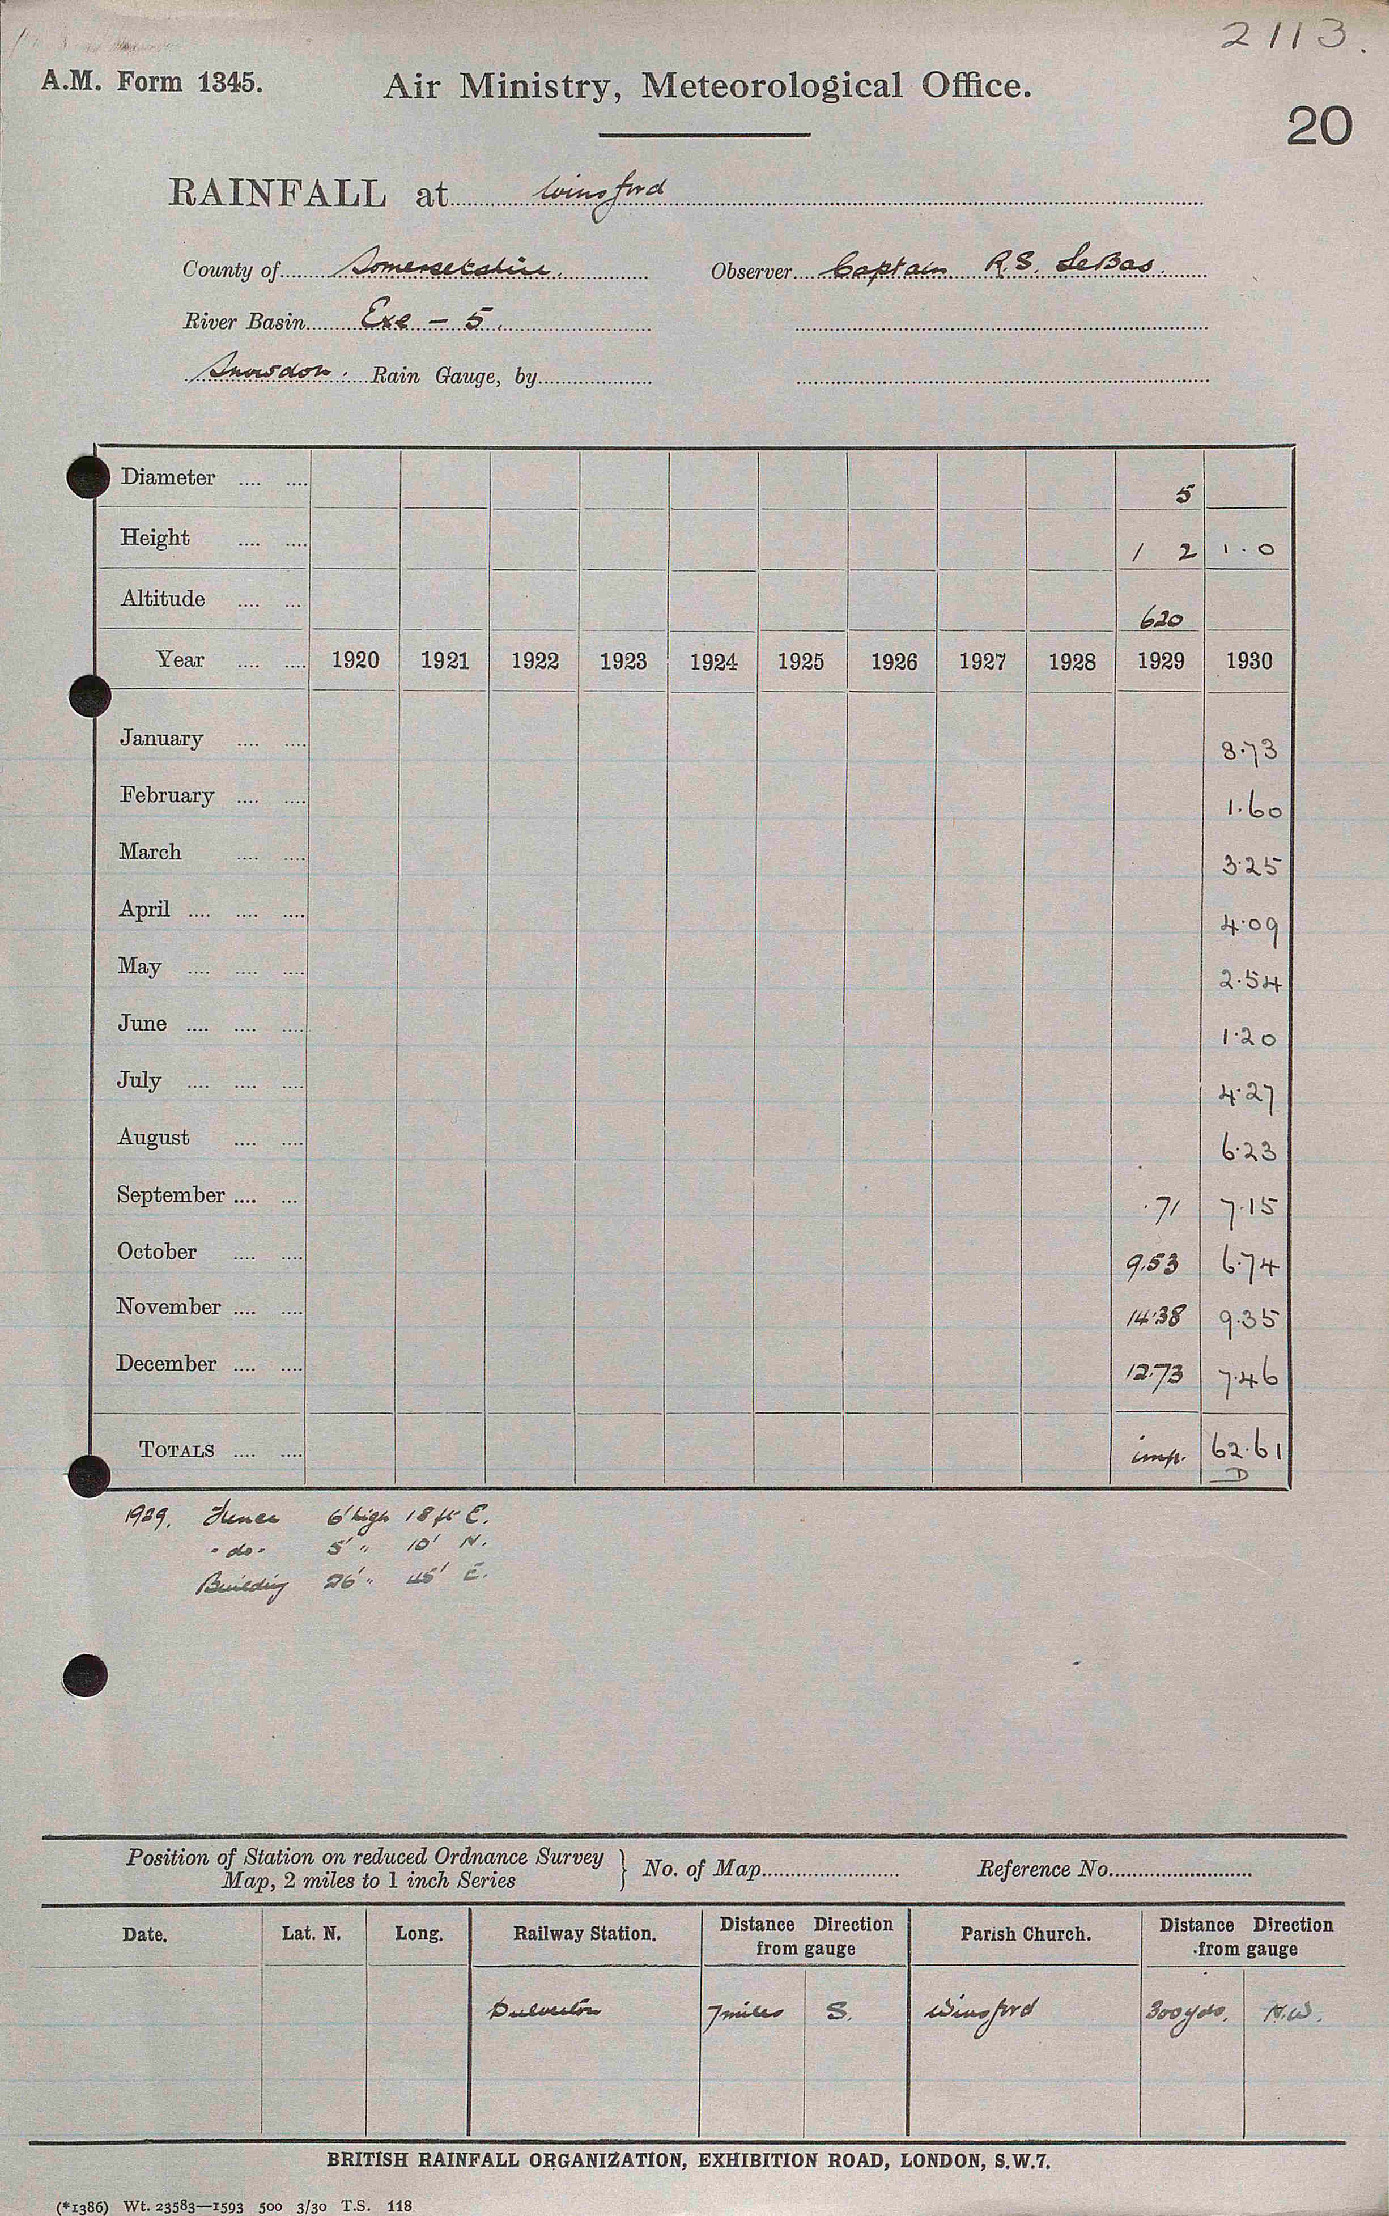 2113.
A.M. Form 1345. Air Ministry, Meteorological Office.
20
RAINFALL at Winsford
County of Somersetshire. Observer Captain R.S. LeBas.
River Basin Exe - 5.
Snowdon. Rain Gauge, by
Diameter .... .... 5
Height .... .... 1 2 1.0
Altitude .... ... 620
Year .... .... 1920 1921 1922 1923 1924 1925 1926 1927 1928 1929 1930
January .... .... 8.73
February .... .... 1.60
March .... .... 3.25
April .... .... .... 4.09
May .... .... .... 2.54
June .... .... .... 1.20
July .... .... .... 4.27
August .... .... 6.23
September .... ... .71 7.15
October .... .... 9.53 6.74
November .... .... 14.38 9.35
December .... .... 12.73 7.46
TOTALS .... .... imp. 62.61
D
1929. Fence 6' high 18 ft E.
- do - 5' " 10' N.
Building 26' " 45' E.
Position of Station on reduced Ordnance Survey
Map, 2 miles to 1 inch Series } No. of Map Reference No.
Date. Lat. N. Long. Railway Station. Distance Direction from gauge Parish Church. Distance Direction from gauge
Dulverton 7 miles S. Winsford 300 yds. N.W.
BRITISH RAINFALL ORGANIZATION, EXHIBITION ROAD, LONDON, S.W.7.
(*1386) Wt. 23583—1593 500 3/30 T.S. 118